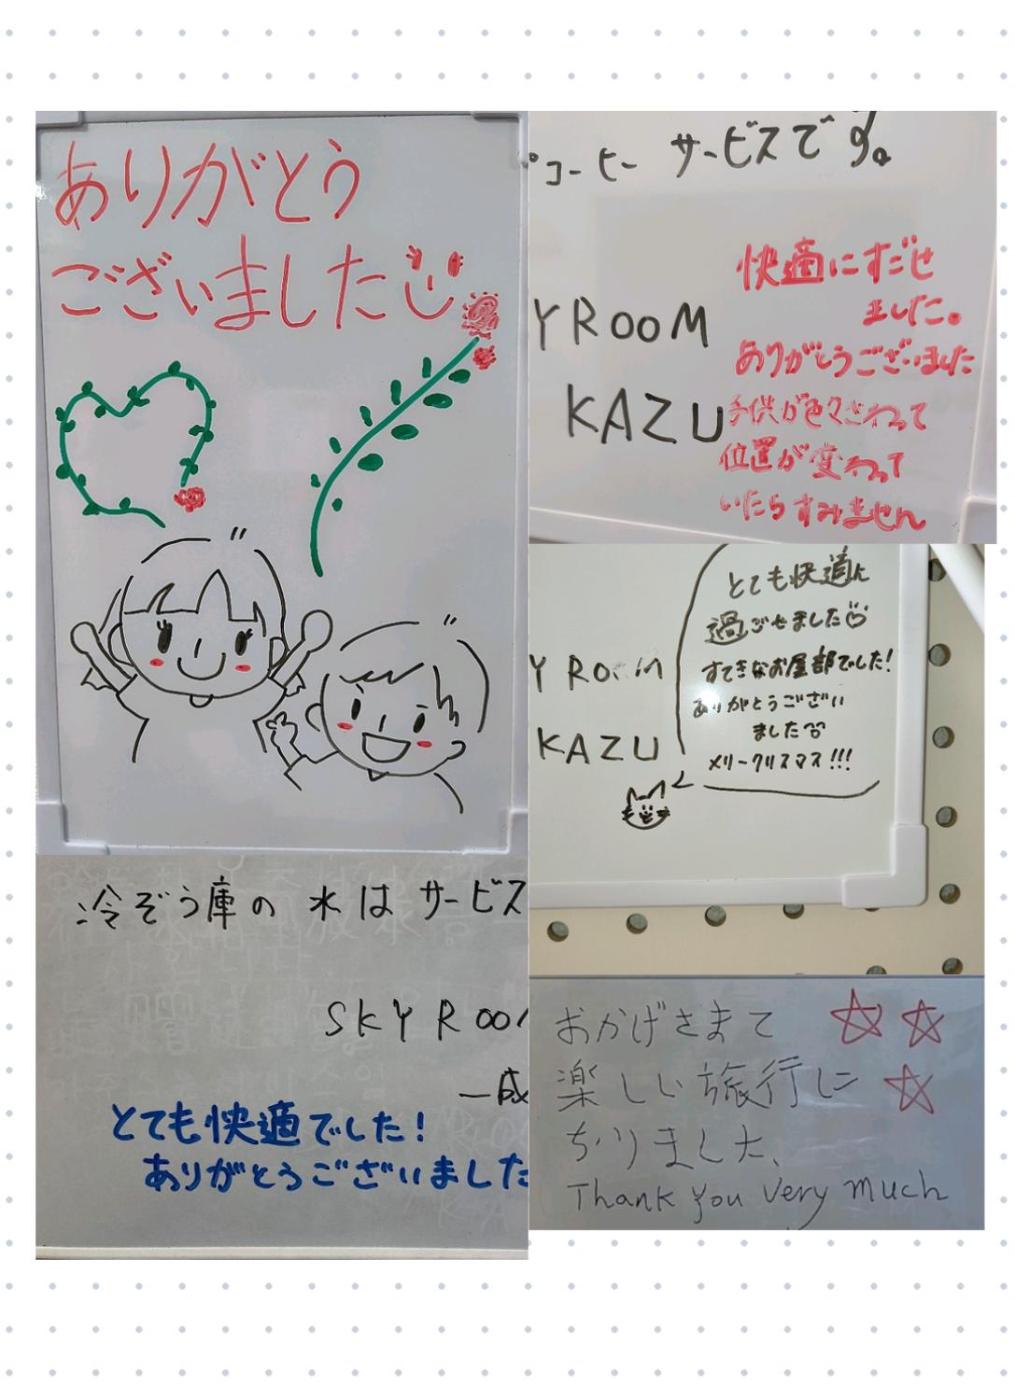 ありがとう
ございました
コーヒー サービスです。
YROOM
KAZU
快適にすごせ
ました。
ありがとうございました
子供が色々さわって
位置が変わって
いたらすみません
とても快適に
過ごせました
すてきなお部屋でした!
ありがとうござい
ました
メリークリスマス!!!
Y ROOM
KAZU
冷ぞう庫の 水は サービス
SKY ROO
一成
とても快適でした!
ありがとうございました
おかげさまて
楽しい旅行に
なりました、
Thank you very much